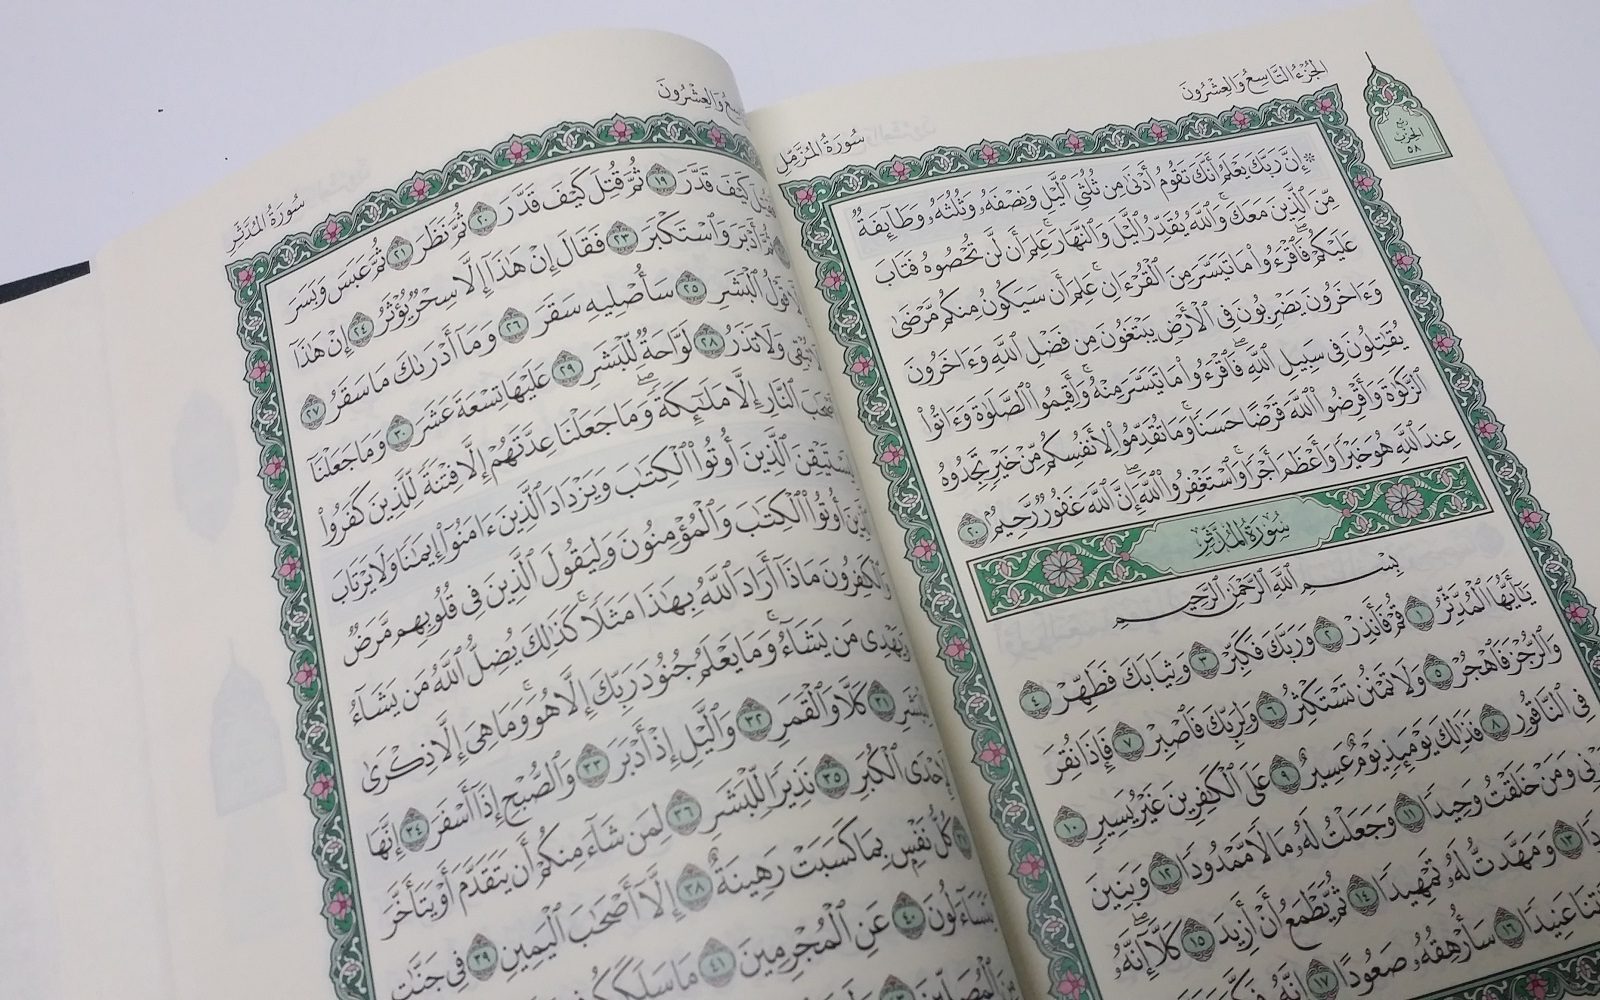 الجُزْءُ التَّاسِعُ وَالعِشْرُونَ
سُورَةُ المُزَّمِّل
رُبْع
الحِزْب
٥٨
۞ إِنَّ رَبَّكَ يَعْلَمُ أَنَّكَ تَقُومُ أَدْنَىٰ مِن ثُلُثَيِ ٱلَّيْلِ وَنِصْفَهُۥ وَثُلُثَهُۥ وَطَآئِفَةٌ
مِّنَ ٱلَّذِينَ مَعَكَۚ وَٱللَّهُ يُقَدِّرُ ٱلَّيْلَ وَٱلنَّهَارَۚ عَلِمَ أَن لَّن تُحْصُوهُ فَتَابَ
عَلَيْكُمْۖ فَٱقْرَءُوا۟ مَا تَيَسَّرَ مِنَ ٱلْقُرْءَانِۚ عَلِمَ أَن سَيَكُونُ مِنكُم مَّرْضَىٰ
وَءَاخَرُونَ يَضْرِبُونَ فِى ٱلْأَرْضِ يَبْتَغُونَ مِن فَضْلِ ٱللَّهِ وَءَاخَرُونَ
يُقَٰتِلُونَ فِى سَبِيلِ ٱللَّهِۖ فَٱقْرَءُوا۟ مَا تَيَسَّرَ مِنْهُۚ وَأَقِيمُوا۟ ٱلصَّلَوٰةَ وَءَاتُوا۟
ٱلزَّكَوٰةَ وَأَقْرِضُوا۟ ٱللَّهَ قَرْضًا حَسَنًاۚ وَمَا تُقَدِّمُوا۟ لِأَنفُسِكُم مِّنْ خَيْرٍ تَجِدُوهُ
عِندَ ٱللَّهِ هُوَ خَيْرًا وَأَعْظَمَ أَجْرًاۚ وَٱسْتَغْفِرُوا۟ ٱللَّهَۖ إِنَّ ٱللَّهَ غَفُورٌ رَّحِيمٌۢ ٢٠
سُورَةُ المُدَّثِّر
بِسْمِ ٱللَّهِ ٱلرَّحْمَٰنِ ٱلرَّحِيمِ
يَٰٓأَيُّهَا ٱلْمُدَّثِّرُ ١ قُمْ فَأَنذِرْ ٢ وَرَبَّكَ فَكَبِّرْ ٣ وَثِيَابَكَ فَطَهِّرْ ٤
وَٱلرُّجْزَ فَٱهْجُرْ ٥ وَلَا تَمْنُن تَسْتَكْثِرُ ٦ وَلِرَبِّكَ فَٱصْبِرْ ٧ فَإِذَا نُقِرَ
فِى ٱلنَّاقُورِ ٨ فَذَٰلِكَ يَوْمَئِذٍ يَوْمٌ عَسِيرٌ ٩ عَلَى ٱلْكَٰفِرِينَ غَيْرُ يَسِيرٍ ١٠
وَمَنْ خَلَقْتُ وَحِيدًا ١١ وَجَعَلْتُ لَهُۥ مَالًا مَّمْدُودًا ١٢ وَبَنِينَ
١٣ وَمَهَّدتُّ لَهُۥ تَمْهِيدًا ١٤ ثُمَّ يَطْمَعُ أَنْ أَزِيدَ ١٥ كَلَّآۖ إِنَّهُۥ
عَنِيدًا ١٦ سَأُرْهِقُهُۥ صَعُودًا ١٧ إِنَّهُۥ فَكَّرَ
وَالعِشْرُونَ
سُورَةُ المُدَّثِّر
كَيْفَ قَدَّرَ ١٩ ثُمَّ قُتِلَ كَيْفَ قَدَّرَ ٢٠ ثُمَّ نَظَرَ ٢١ ثُمَّ عَبَسَ وَبَسَرَ
أَدْبَرَ وَٱسْتَكْبَرَ ٢٣ فَقَالَ إِنْ هَٰذَآ إِلَّا سِحْرٌ يُؤْثَرُ ٢٤ إِنْ هَٰذَآ
قَوْلُ ٱلْبَشَرِ ٢٥ سَأُصْلِيهِ سَقَرَ ٢٦ وَمَآ أَدْرَىٰكَ مَا سَقَرُ ٢٧
تُبْقِى وَلَا تَذَرُ ٢٨ لَوَّاحَةٌ لِّلْبَشَرِ ٢٩ عَلَيْهَا تِسْعَةَ عَشَرَ ٣٠ وَمَا جَعَلْنَآ
ٱلنَّارِ إِلَّا مَلَٰٓئِكَةًۖ وَمَا جَعَلْنَا عِدَّتَهُمْ إِلَّا فِتْنَةً لِّلَّذِينَ كَفَرُوا۟
ٱلَّذِينَ أُوتُوا۟ ٱلْكِتَٰبَ وَيَزْدَادَ ٱلَّذِينَ ءَامَنُوٓا۟ إِيمَٰنًاۙ وَلَا يَرْتَابَ
أُوتُوا۟ ٱلْكِتَٰبَ وَٱلْمُؤْمِنُونَۙ وَلِيَقُولَ ٱلَّذِينَ فِى قُلُوبِهِم مَّرَضٌ
وَٱلْكَٰفِرُونَ مَاذَآ أَرَادَ ٱللَّهُ بِهَٰذَا مَثَلًاۚ كَذَٰلِكَ يُضِلُّ ٱللَّهُ مَن يَشَآءُ
وَيَهْدِى مَن يَشَآءُۚ وَمَا يَعْلَمُ جُنُودَ رَبِّكَ إِلَّا هُوَۚ وَمَا هِىَ إِلَّا ذِكْرَىٰ
٣١ كَلَّا وَٱلْقَمَرِ ٣٢ وَٱلَّيْلِ إِذْ أَدْبَرَ ٣٣ وَٱلصُّبْحِ إِذَآ أَسْفَرَ ٣٤ إِنَّهَا
لَإِحْدَى ٱلْكُبَرِ ٣٥ نَذِيرًا لِّلْبَشَرِ ٣٦ لِمَن شَآءَ مِنكُمْ أَن يَتَقَدَّمَ أَوْ يَتَأَخَّرَ
كُلُّ نَفْسٍۭ بِمَا كَسَبَتْ رَهِينَةٌ ٣٨ إِلَّآ أَصْحَٰبَ ٱلْيَمِينِ ٣٩ فِى جَنَّٰتٍ
يَتَسَآءَلُونَ ٤٠ عَنِ ٱلْمُجْرِمِينَ ٤١ مَا سَلَكَكُمْ